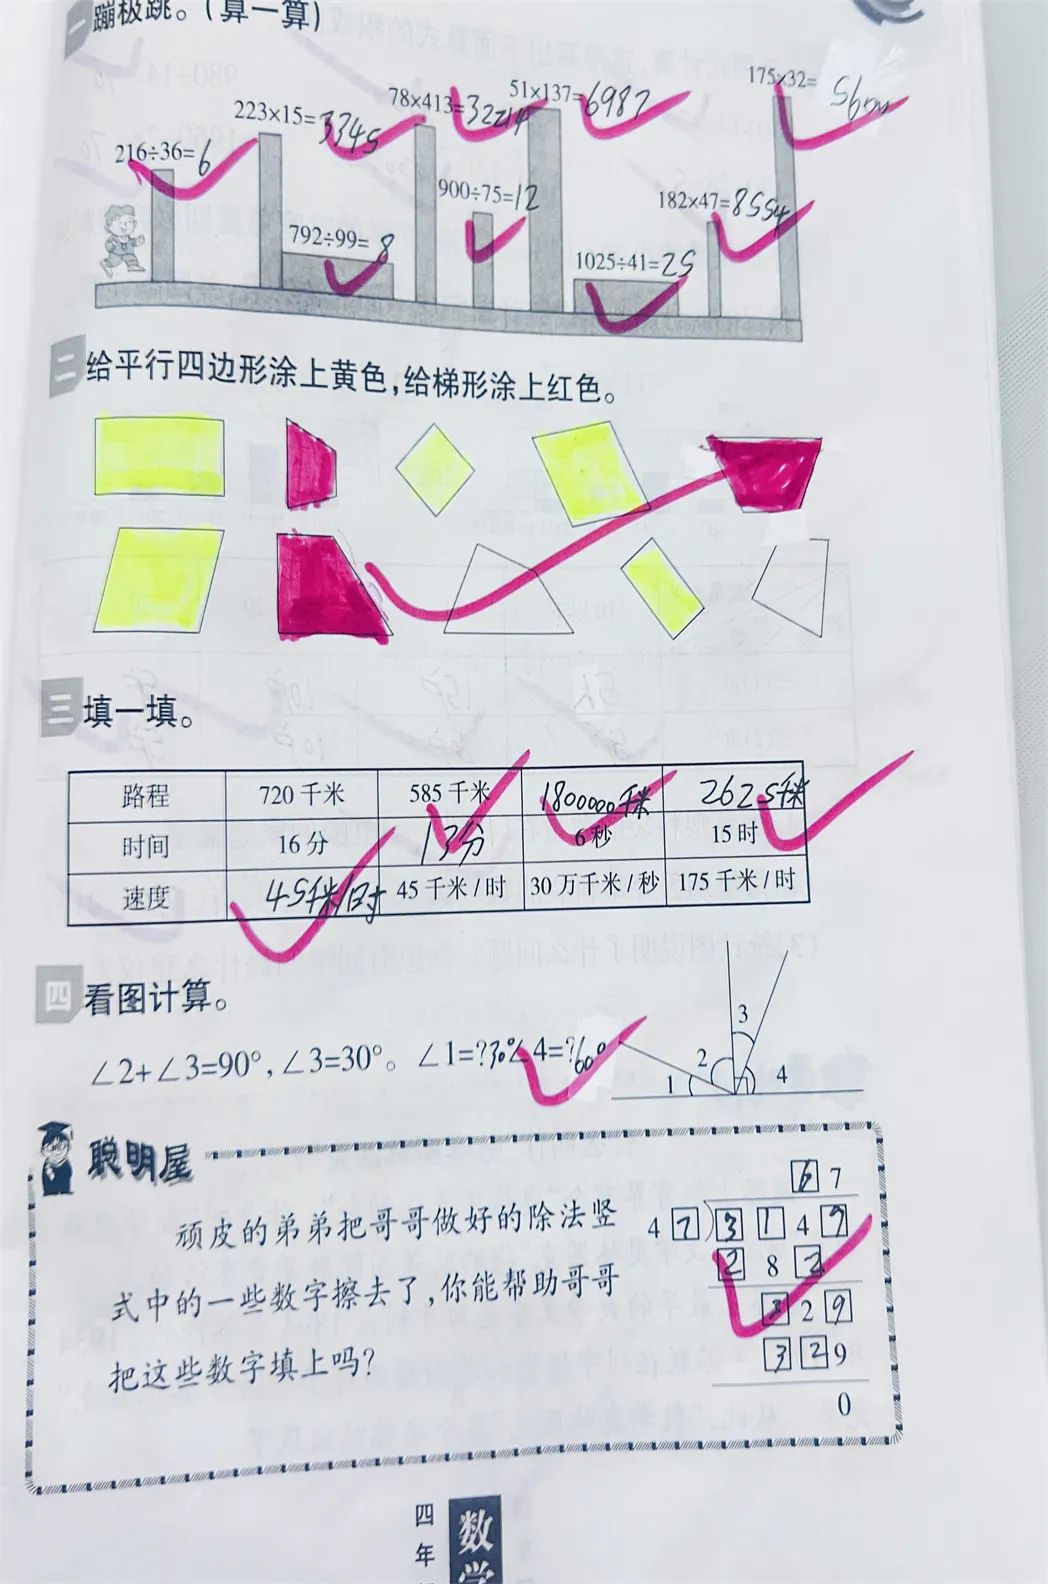 一 蹦极跳。(算一算)
216÷36=6
223×15=3345
792÷99=8
78×413=32214
900÷75=12
51×137=6987
1025÷41=25
182×47=8554
175×32=5600
二 给平行四边形涂上黄色,给梯形涂上红色。
三 填一填。
路程 720千米 585千米 1800000千米 2625千米
时间 16分 13分 6秒 15时
速度 45千米/时 45千米/时 30万千米/秒 175千米/时
四 看图计算。
∠2+∠3=90°,∠3=30°。∠1=?30°∠4=?60°
1 2 3 4
聪明屋
顽皮的弟弟把哥哥做好的除法竖
式中的一些数字擦去了,你能帮助哥哥
把这些数字填上吗?
6 7
4 7 3 1 4 9
2 8 2
3 2 9
3 2 9
0
四年
数学